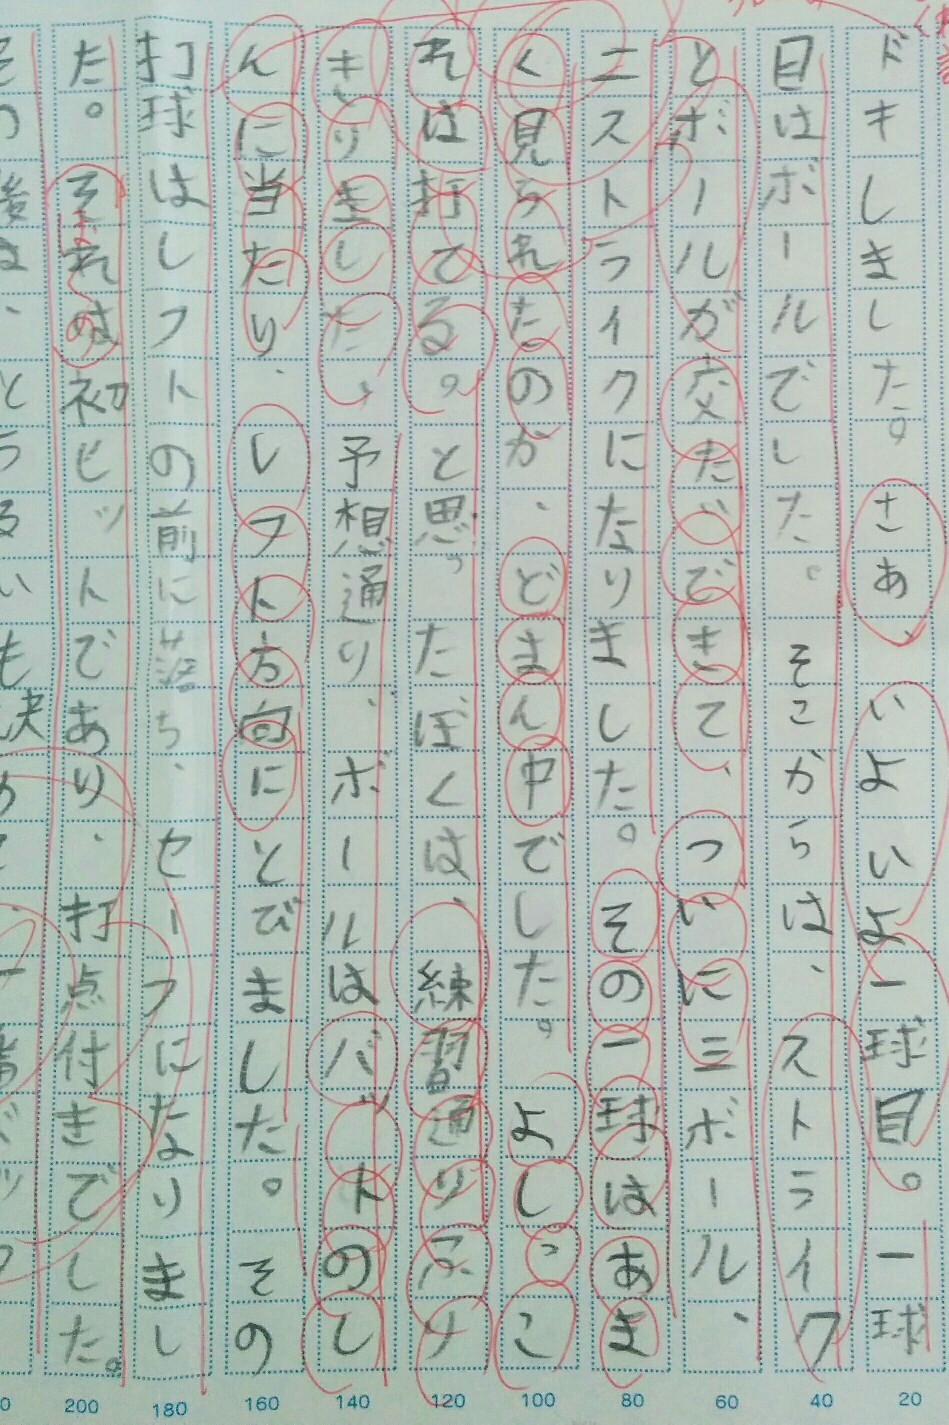 ドキしました。さあ、いよいよ一球目。一球
目はボールでした。そこからは、ストライク
とボールが交ださきて、ついに三ボール、
ニストライクになりました。その一球はあま
く見られたのか、どまん中でした。よしっこ
れは打てる。と思ったぼくは、練習通りふり
きりました、予想通り、ボールはバットのし
んに当たり、レフト方向にとびました。その
打球はレフトの前に落ち、セーフになりまし
た。それは初ヒットであり、打点付きでした。